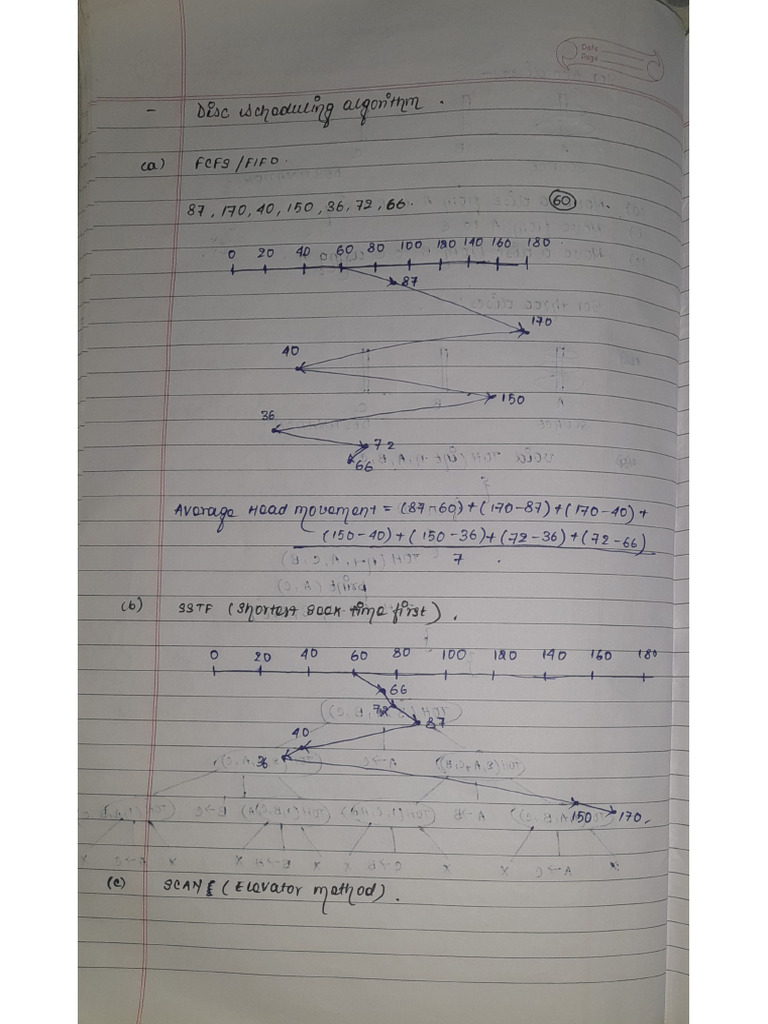 Date
Page
- Disc scheduling algorithm.
(a) FCFS/FIFO.
87, 170, 40, 150, 36, 72, 66. 60
0 20 40 60 80 100 120 140 160 180
87
170
40
150
36
72
66
Average Head movement = (87-60)+(170-87)+(170-40)+
(150-40)+(150-36)+(72-36)+(72-66)
7
(b) SSTF (shortest seek time first).
0 20 40 60 80 100 120 140 160 180
66
72
87
40
36
150 170.
(c) SCAN (Elevator method).